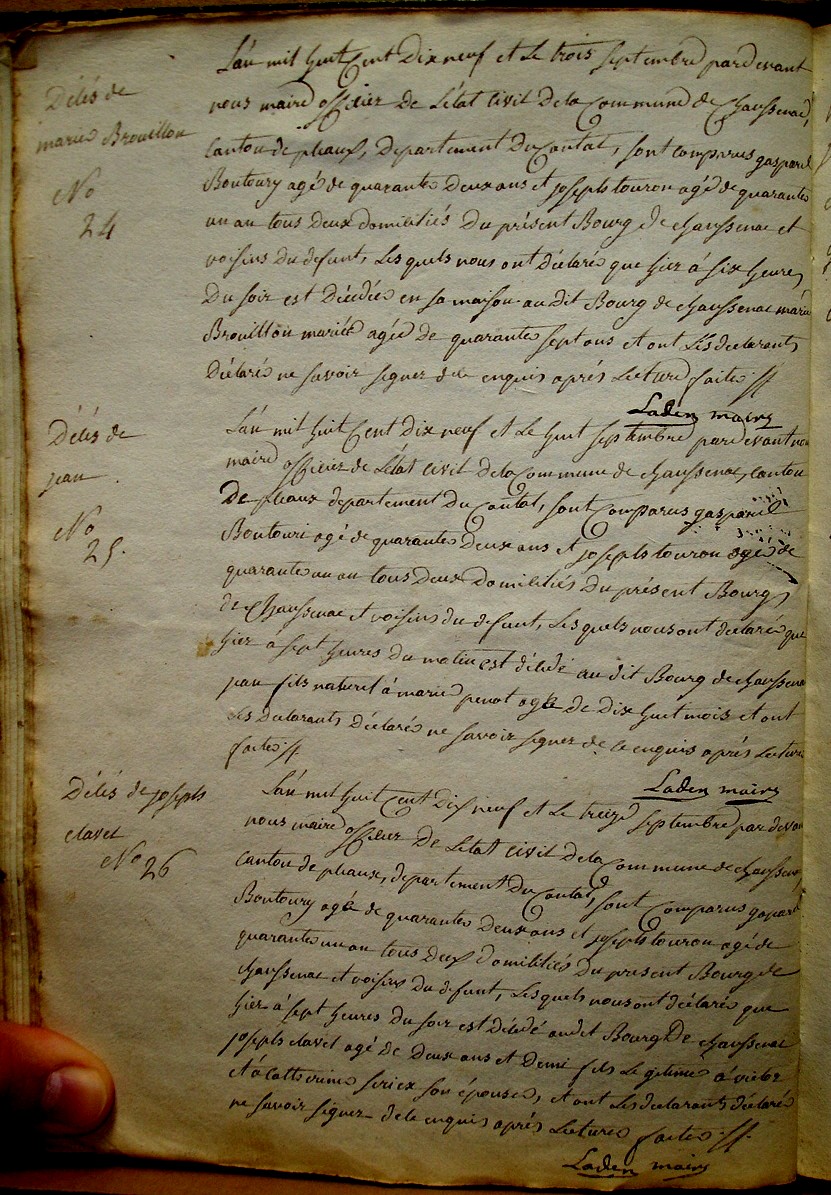 Décès de
marie Brouillon
No
24
L'an mil huit Cent Dix neuf et Le trois septembre pardevant
nous maire officier de L'état Civil de la Commune de Chaussenac,
Canton de pleaux, Departement Du Cantal, sont comparus gaspard
Boutoury agé de quarante Deux ans et joseph touron agé de quarante
un an tous Deux domiciliés Du présent Bourg de chaussenac et
voisins du defunt, Les quels nous ont Déclaré que hier à six heures
Du soir est Décédée en sa maison au dit Bourg de chaussenac marie
Brouillon mariée agée de quarante sept ans et ont Les déclarants
Déclaré ne savoir signer de ce enquis après Lecture faite
Laden maire
Décès de
jean
No
25.
L'an mil huit Cent Dix neuf et Le huit septembre pardevant nous
maire officier de L'état Civil de la Commune de chaussenac, canton
De pleaux departement Du Cantal, sont Comparus gaspard
Boutouri agé de quarante Deux ans et joseph touron agé de
quarante un an tous Deux Domiciliés Du présent Bourg
de Chaussenac et voisins du defunt, Les quels nous ont déclaré que
hier à sept heures Du matin est décédé au dit Bourg de chaussenac
jean fils naturel à marie penot agé de Dix huit mois et ont
Les Declarants Déclaré ne savoir signer de ce enquis après Lecture
faite
Laden maire
Décès de joseph
clavet
No 26
L'an mil huit Cent Dix neuf et Le treize septembre pardevant
nous maire officier de L'état Civil de la Commune de chaussenac,
Canton de pleaux, departement Du Cantal, sont Comparus gaspard
Boutoury agé de quarante Deux ans et joseph touron agé de
quarante un an tous Deux Domiciliés Du present Bourg de
chaussenac et voisins Du defunt, Les quels nous ont déclaré que
hier à sept heures Du soir est Décédé au dit Bourg De chaussenac
joseph clavet agé de Deux ans et Demi fils Legitime à
et à Catterine son épouse, et ont Les declarants déclaré
ne savoir signer de ce enquis après Lecture faite
Laden maire